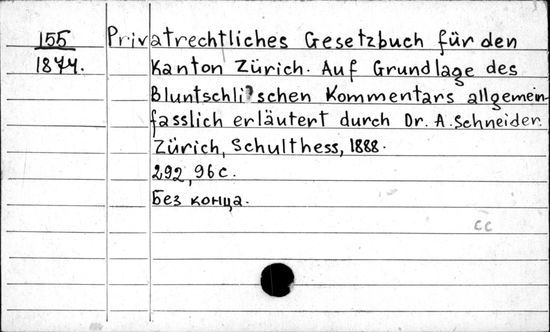 155 Privatrechtliches Gesetzbuch für den
1874. Kanton Zürich. Auf Grundlage des
Bluntschli'schen Kommentars allgemein
fasslich erläutert durch Dr. A. Schneider.
Zürich, Schulthess, 1888.
292, 96 с.
Без конца.
cc